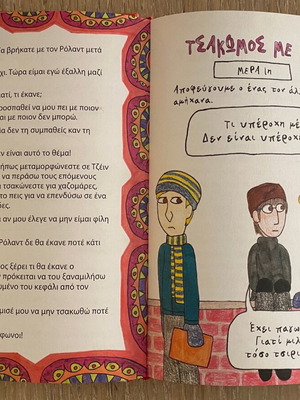 Τα βρήκατε με τον Ρόλαντ μετά
χι. Τώρα είμαι εγώ έξαλλη μαζί
ατί, τι έκανε;
ροσπαθεί να μου πει με ποιον
αι με ποιον δεν μπορώ.
ία δεν τη συμπαθείς καν τη
εν είναι αυτό το θέμα!
ήπως μεταμορφώνεστε σε Τζέιν
να περάσω τους επόμενους
τσακώνεστε για χαζομάρες,
το πεις για να επενδύσω σε ένα
δες.
α αν μου έλεγε να μην είμαι φίλη
Ρόλαντ δε θα έκανε ποτέ κάτι
ος ξέρει τι θα έκανε ο
ν πρόκειται να του ξαναμιλήσω
μένο του κεφάλι από τον
μισέ μου να μην τσακωθώ ποτέ
φωνοι!
ΤΣΑΚΩΜΟΣ ΜΕ
ΜΕΡΑ 1η
Αποφεύγουμε ο ένας τον άλ
αμήχανα.
Τι υπέροχη μέ
Δεν είναι υπέροχ
Έχει παγω
Γιατί μιλ
τόσο τσιρι